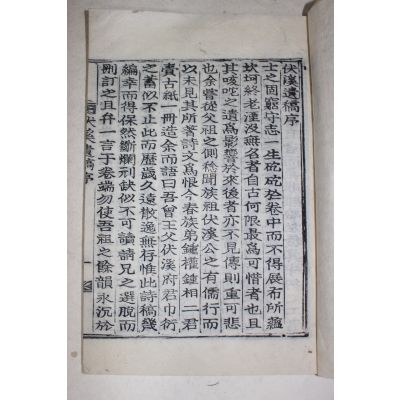 伏溪遺稿序
士之固窮守志一生矻矻於卷中而不得展布所蘊
坎坷終老湮沒無名者自古何限最爲可惜者也且
其咳唾之遺爲影響於來後者亦不見傳則重可悲
也余嘗從父祖之側稔聞族祖伏溪公之有儒行而
以未見其所著詩文爲恨今春族弟鍾權鍾相二君
賫古紙一冊造余而語曰吾曾王父伏溪府君巾衍
之蓄似不止此而歷歲久遠散逸無行惟此詩稿幾
編幸而得保然斷爛刓缺似不可讀請兄之選脫而
刪訂之且弁一言于卷端勿使吾祖之餘韻永沉於
伏溪遺稿序
一